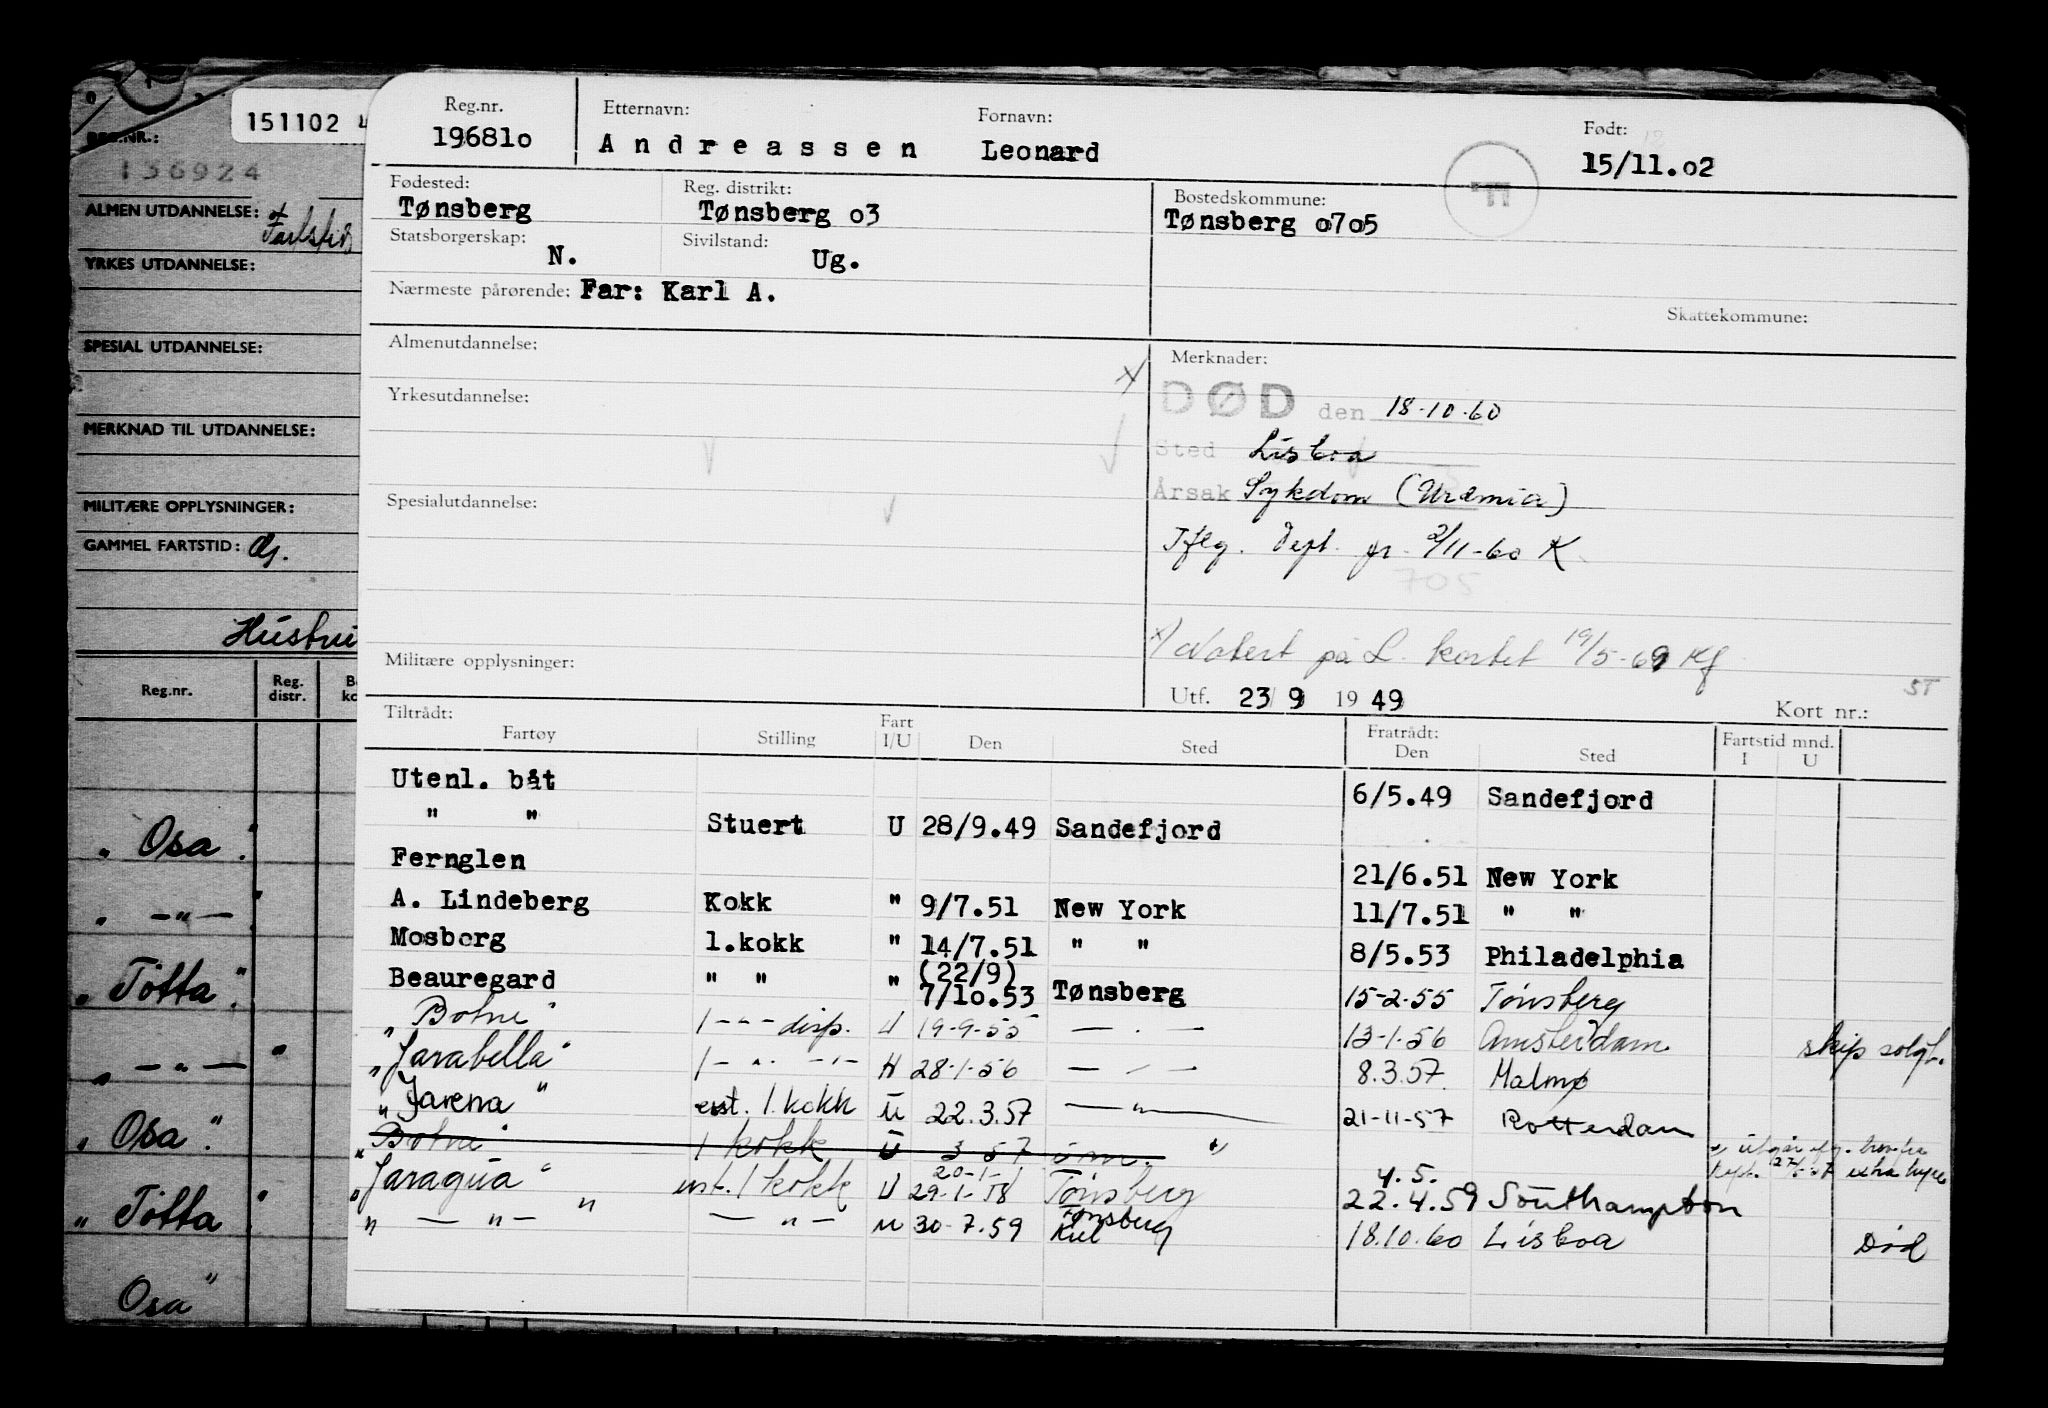 REG.NR.:
151102 4
136924
ALMEN UTDANNELSE:
YRKES UTDANNELSE:
SPESIAL UTDANNELSE:
MERKNAD TIL UTDANNELSE:
MILITÆRE OPPLYSNINGER:
GAMMEL FARTSTID:
Reg.nr. Reg. distr.
" Osa "
" — " — "
" Totta "
" — " — "
" Osa "
" Totta "
Osa "
Reg.nr. Etternavn: Fornavn: Født:
196810 Andreassen Leonard 15/11.02
Fødested: Reg. distrikt: Bostedskommune:
Tønsberg Tønsberg 03 Tønsberg 0705
Statsborgerskap: Sivilstand:
N. Ug.
Nærmeste pårørende: Far: Karl A.
Skattekommune:
Almenutdannelse: Merknader:
DØD den 18-10-60
Yrkesutdannelse:
Sted Lisboa
Årsak Sykdom (Uremia)
Spesialutdannelse:
Iflg. Dept. gr. 2/11-60 K
705
x) Notert på L. kortet 19/5-69 Kf
Militære opplysninger:
ST
Utf. 23/9 1949 Kort nr.:
Tiltrådt: Fratrådt: Fartstid mnd.
Fartøy Stilling Fart I/U Den Sted Den Sted I U
Utenl. båt 6/5.49 Sandefjord
" " Stuert U 28/9.49 Sandefjord
Fernglen 21/6.51 New York
A. Lindeberg Kokk " 9/7.51 New York 11/7.51 " "
Mosborg 1.kokk " 14/7.51 " " 8/5.53 Philadelphia
Beauregard " " " (22/9) 7/10.53 Tønsberg 15-2-55 Tönsberg
"Botne" 1 - " - disp. U 19-9-55 — " — 13-1-56 Amsterdam skip solgt.
"Jarabella" 1 - " - " - 28-1-56 — " — 8.3.57. Malmø
"Jarena" est. 1. kokk U 22.3.57 — " — 21-11-57 Rotterdam
"Botne" 1 kokk U 3 57 "
"Jaragua" est. 1 kokk U 20-1- 29-1-58 Tönsberg 4.5. 22.4.59 Southampton
" — " — " — " — U 30-7.59 Tønsberg Kiel 18.10.60 Lisboa Död